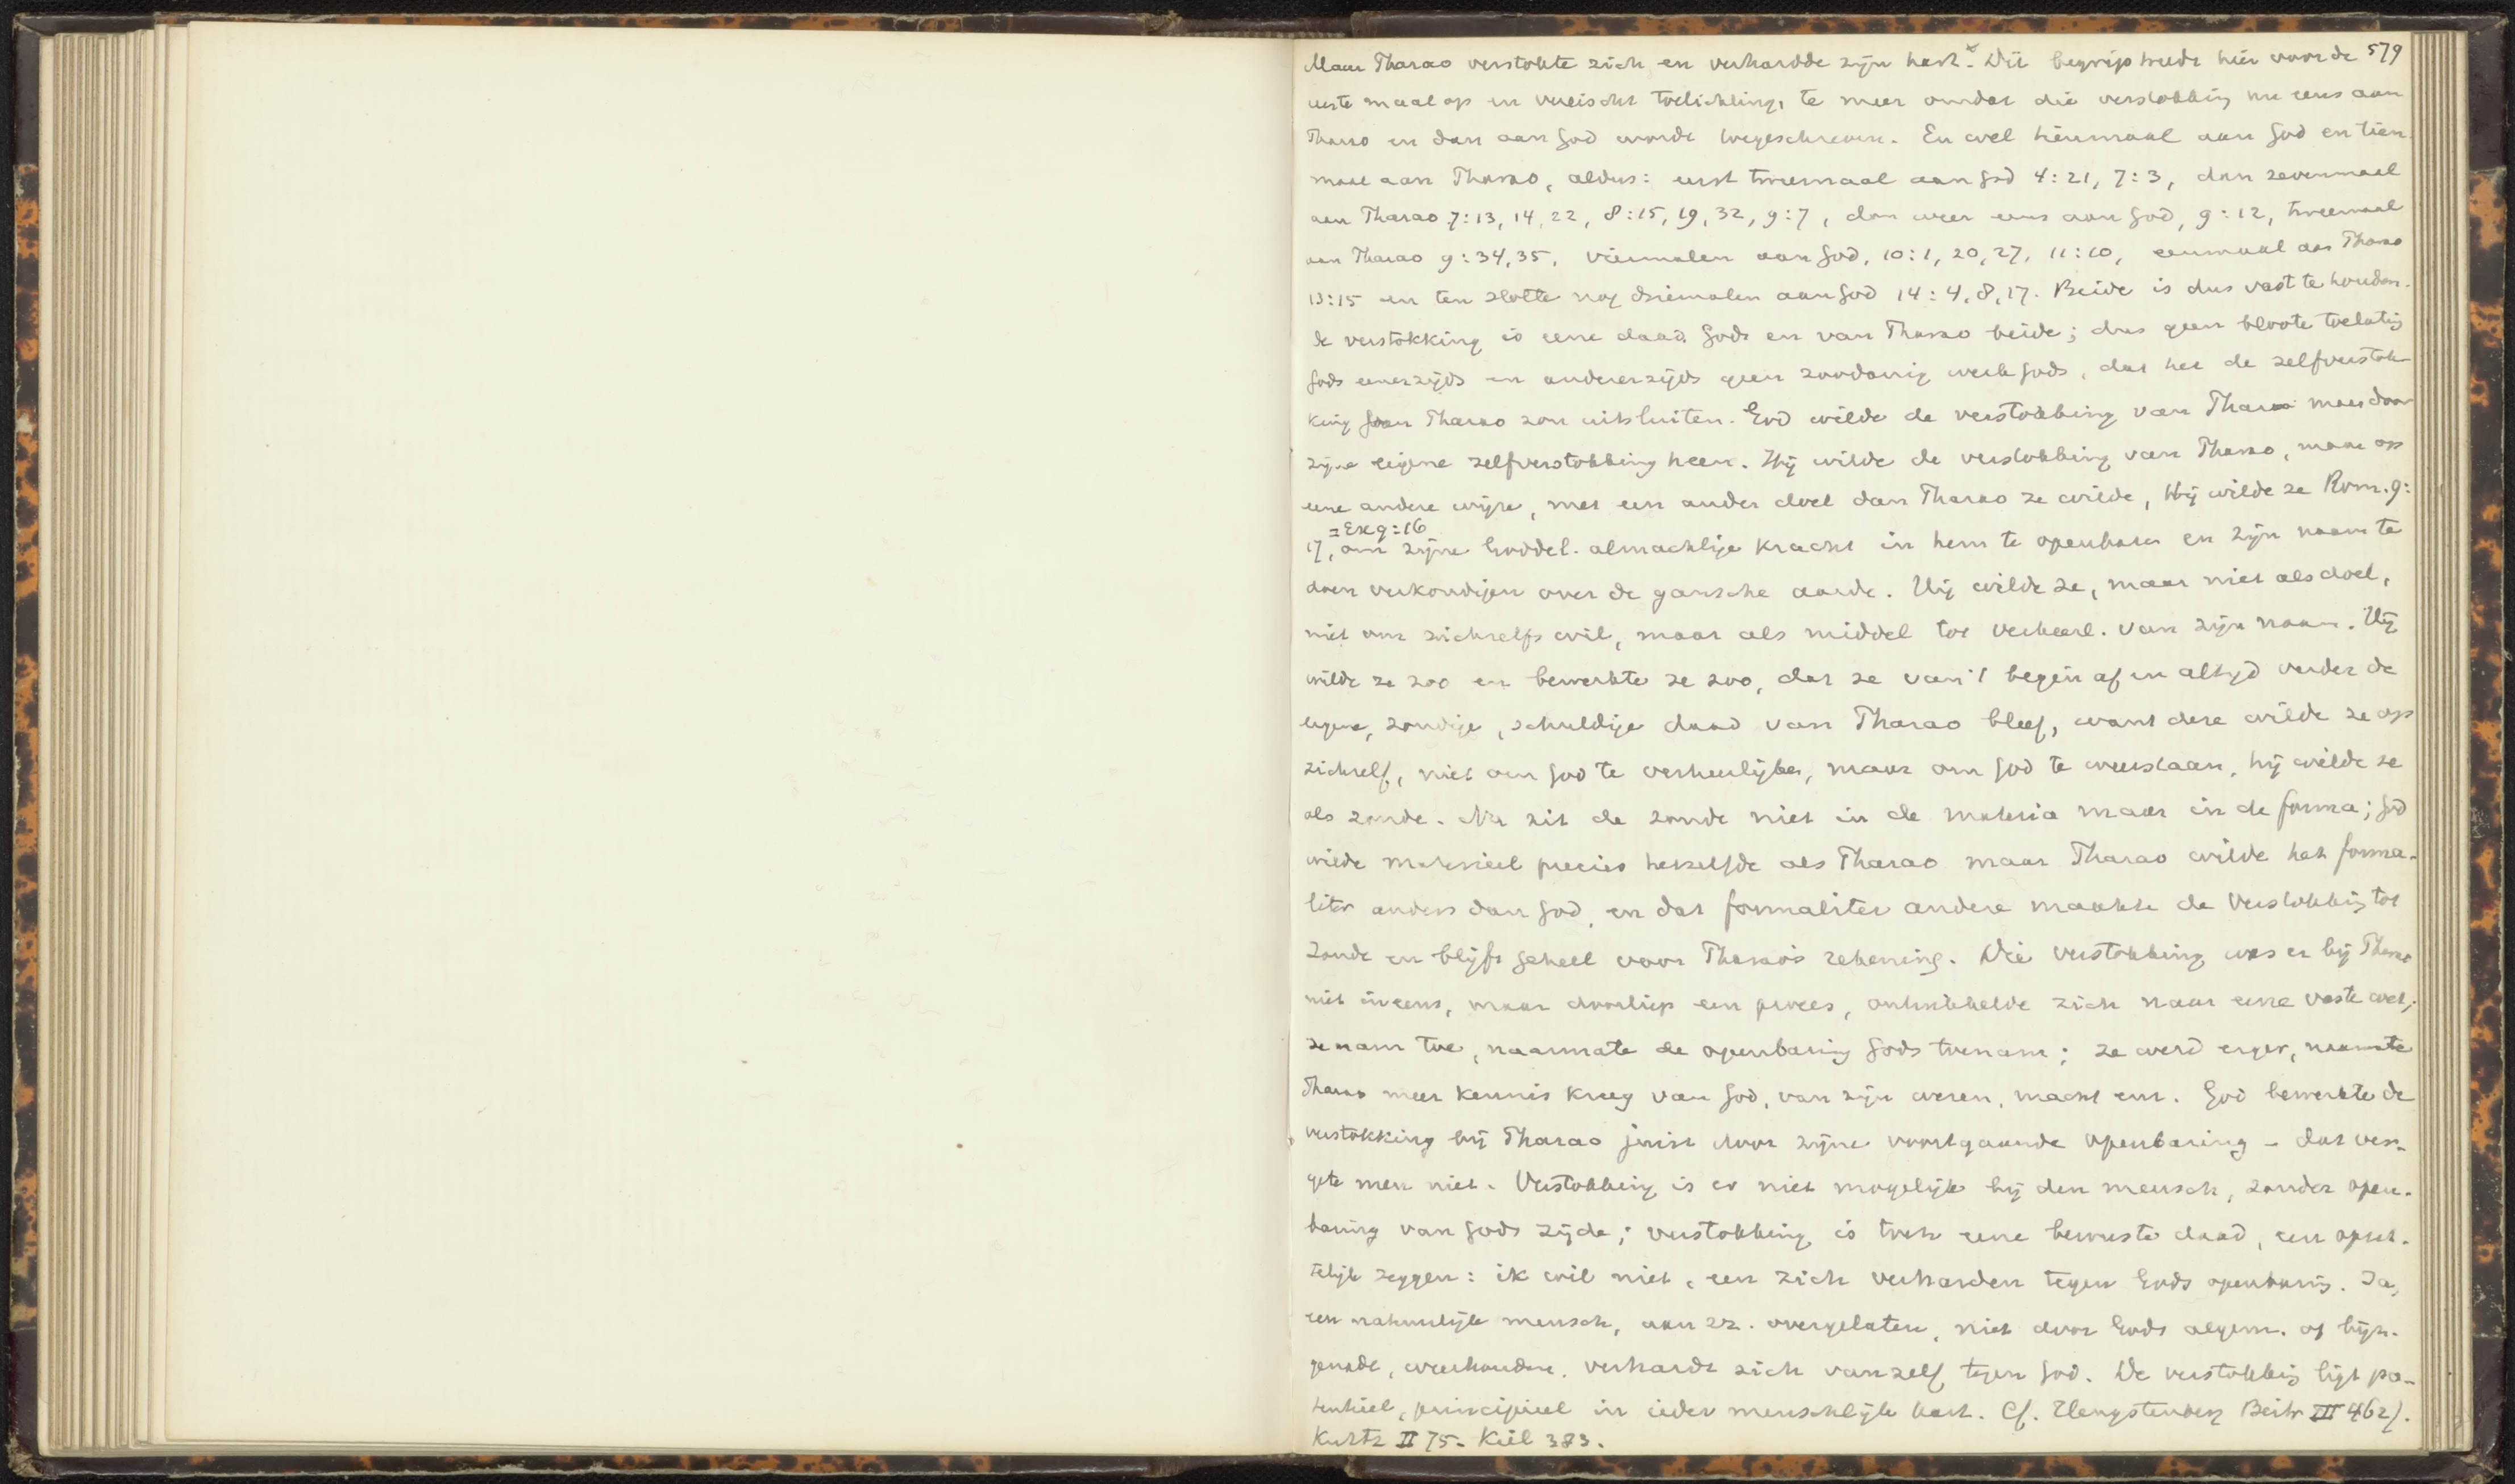 Maar Pharao verstokte zich en verhardde zijn hart. × Dit begrip treedt hier voor de 579
eerste maal op en vereischt toelichting, te meer omdat die verstokking nu eens aan
Pharao en dan aan God wordt toegeschreven. En wel tienmaal aan God en tien
maal aan Pharao, aldus: eerst tweemaal aan God 4:21, 7:3, dan zevenmaal
aan Pharao 7:13, 14, 22, 8:15, 19, 32, 9:7, dan weer eens aan God, 9:12, tweemaal
aan Pharao 9:34, 35, viermalen aan God, 10:1, 20, 27, 11:10, eenmaal aan Pharao
13:15 en ten slotte nog driemalen aan God 14:4, 8, 17. Beide is dus vast te houden.
de verstokking is eene daad Gods en van Pharao beide; dus geen bloote toelating
Gods eenerzijds en andererzijds geen zoodanig werk Gods, dat het de zelfverstok-
king van Pharao zou uitsluiten. God wilde de verstokking van Pharao maar door
zijne eigene zelfverstokking heen. Hij wilde de verstokking van Pharao, maar op
eene andere wijze, met een ander doel dan Pharao ze wilde, Hij wilde ze Rom. 9:
= Ex 9:16
17, om zijne Goddel. almachtige kracht in hem te openbaren en zijn naam te
doen verkondigen over de gansche aarde. Hij wilde ze, maar niet als doel,
niet om zichzelfs wil, maar als middel tot verheerl. van zijn naam. Hij
wilde ze zoo en bewerkte ze zoo, dat ze van 't begin af en altijd verder de
eigene, zondige, schuldige daad van Pharao bleef, want deze wilde ze op
zichzelf, niet om God te verheerlijken, maar om God te weerstaan, hij wilde ze
als zonde. Nu zit de zonde niet in de materia maar in de forma; God
wilde materieel precies hetzelfde als Pharao maar Pharao wilde het forma-
liter anders dan God, en dat formaliter andere maakte de verstokking tot
zonde en blijft geheel voor Pharao's rekening. Die verstokking was er bij Pharao
niet ineens, maar doorliep een proces, ontwikkelde zich naar eene vaste wet;
ze nam toe, naarmate de openbaring Gods toenam; ze werd erger, naarmate
Pharao meer kennis kreeg van God, van zijn wezen, macht enz. God bewerkte de
verstokking bij Pharao juist door zijne voortgaande openbaring - dat ver-
gete men niet. Verstokking is er niet mogelijk bij den mensch, zonder open-
baring van Gods zijde; verstokking is toch eene bewuste daad, een opzet-
telijk zeggen: ik wil niet, een zich verharden tegen Gods openbaring. Ja,
een natuurlijk mensch, aan zz. overgelaten, niet door Gods algem. of bijz.
genade, weerhouden, verhardt zich vanzelf tegen God. De verstokking ligt po-
tentieel, principieel in ieder menschelijk hart. Cf. Hengstenberg Beitr III 462f.
Kurtz II 75. Keil 383.